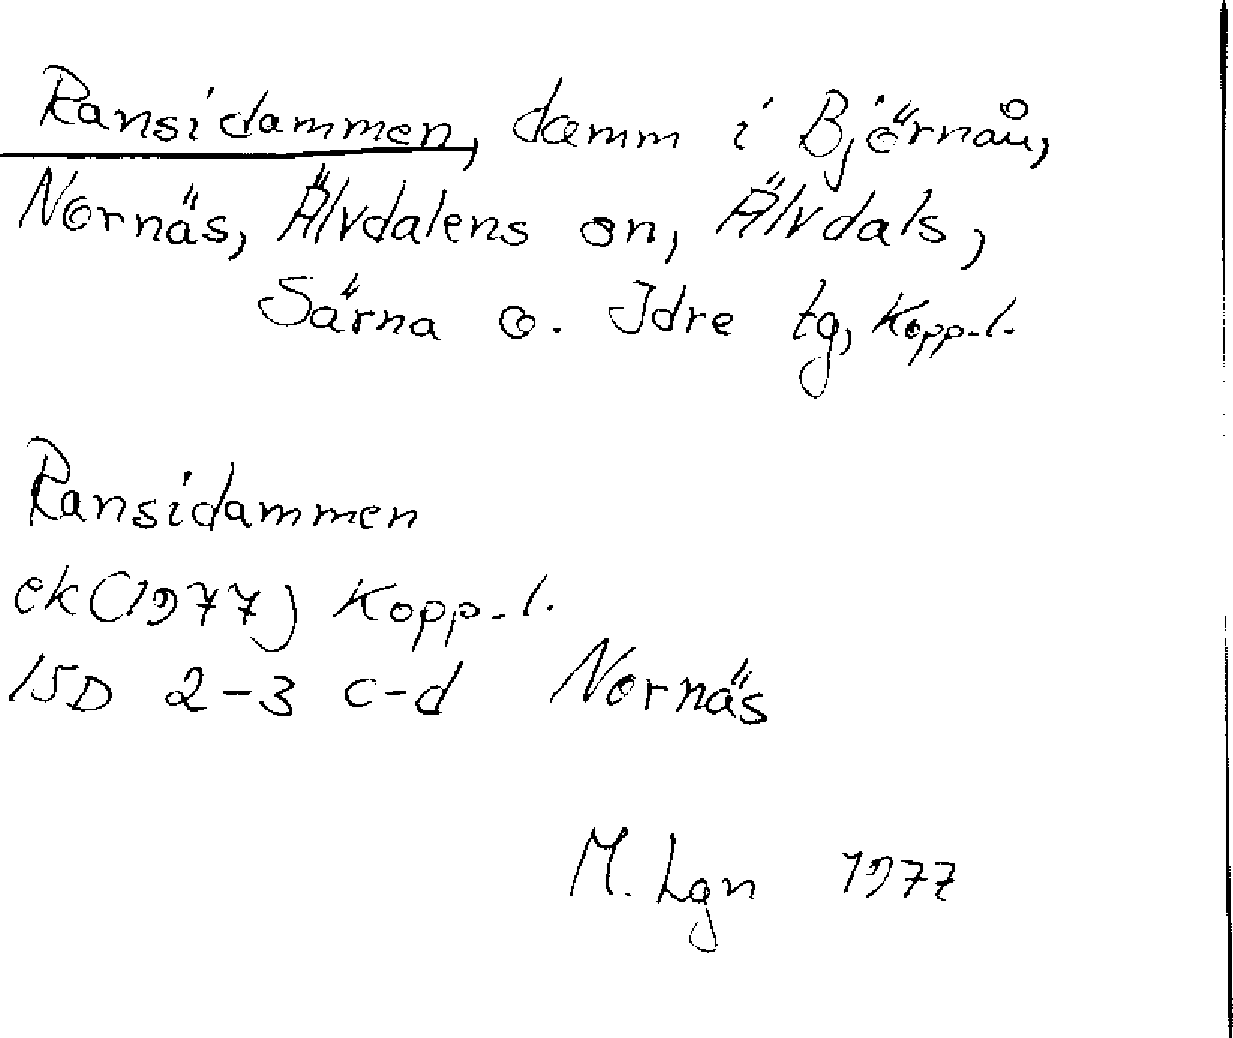 Ransidammen, damm i Björnån,
Nornäs, Älvdalens sn, Älvdals,
Särna o. Idre tg, Kopp.l.
Ransidammen
ek (1977) Kopp.l.
15D 2-3 c-d Nornäs
M. Lgn 1977